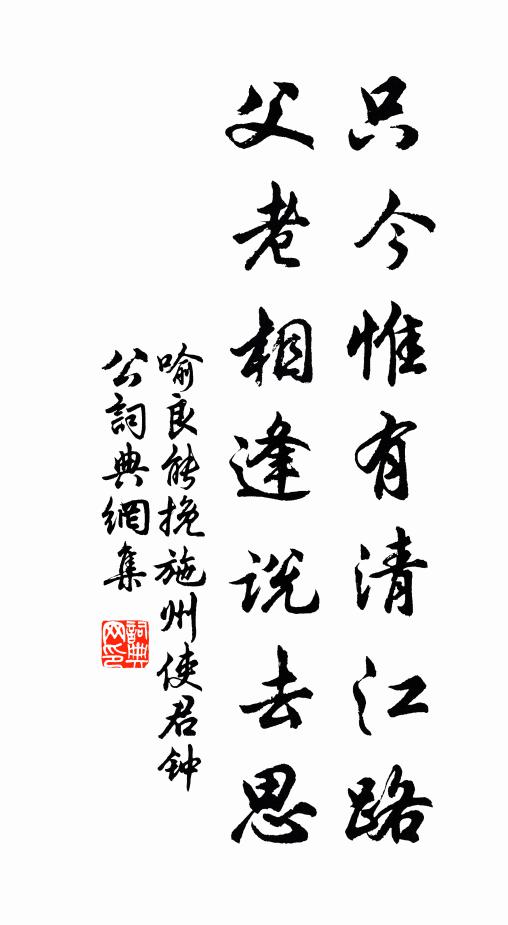 只今惟有清江路
父老相逢說去思
喻良能挽施州使君钟
公詞典網集
詞典
网印